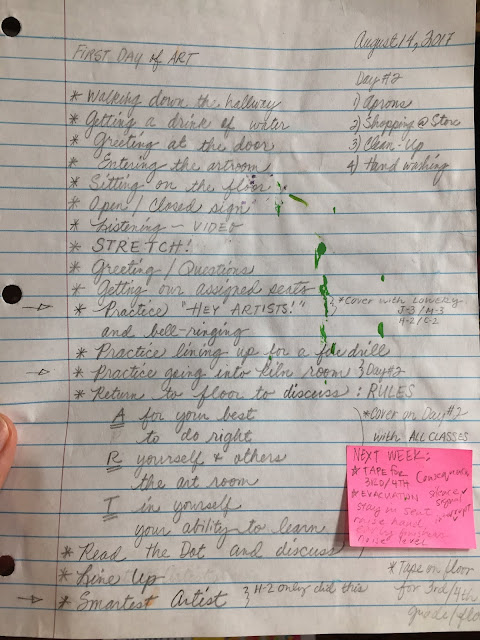 FIRST DAY of ART
August 14, 2017
Day #2
1) Aprons
2) Shopping @ Store
3) Clean-Up
4) Hand washing
* Walking down the hallway
* Getting a drink of water
* Greeting at the door
* Entering the artroom
* Sitting on the floor
* Open / Closed sign
* Listening - VIDEO
* STRETCH!
* Greeting / Questions
* Getting our assigned seats
→ * Practice "HEY ARTISTS!"
and bell-ringing
} * Cover with LOWERY
J-3 / M-3
A-2 / C-2
* Practice lining up for a fire drill
→ * Practice going into kiln room } Day #2
* Return to floor to discuss : RULES
A for your best
to do right
R yourself & others
the art room
I in yourself
your ability to learn
* Cover on Day #2
with ALL CLASSES
* Read the Dot and discuss
* Line Up
→ * Smartest Artist } H-2 only did this
NEXT WEEK:
* TAPE FOR
3RD/4TH
Consequences
* EVACUATION
silence
signal
stay in seat
raise hand,
interrupt
noise level
* Tape on floor
for 3rd/4th
grade/